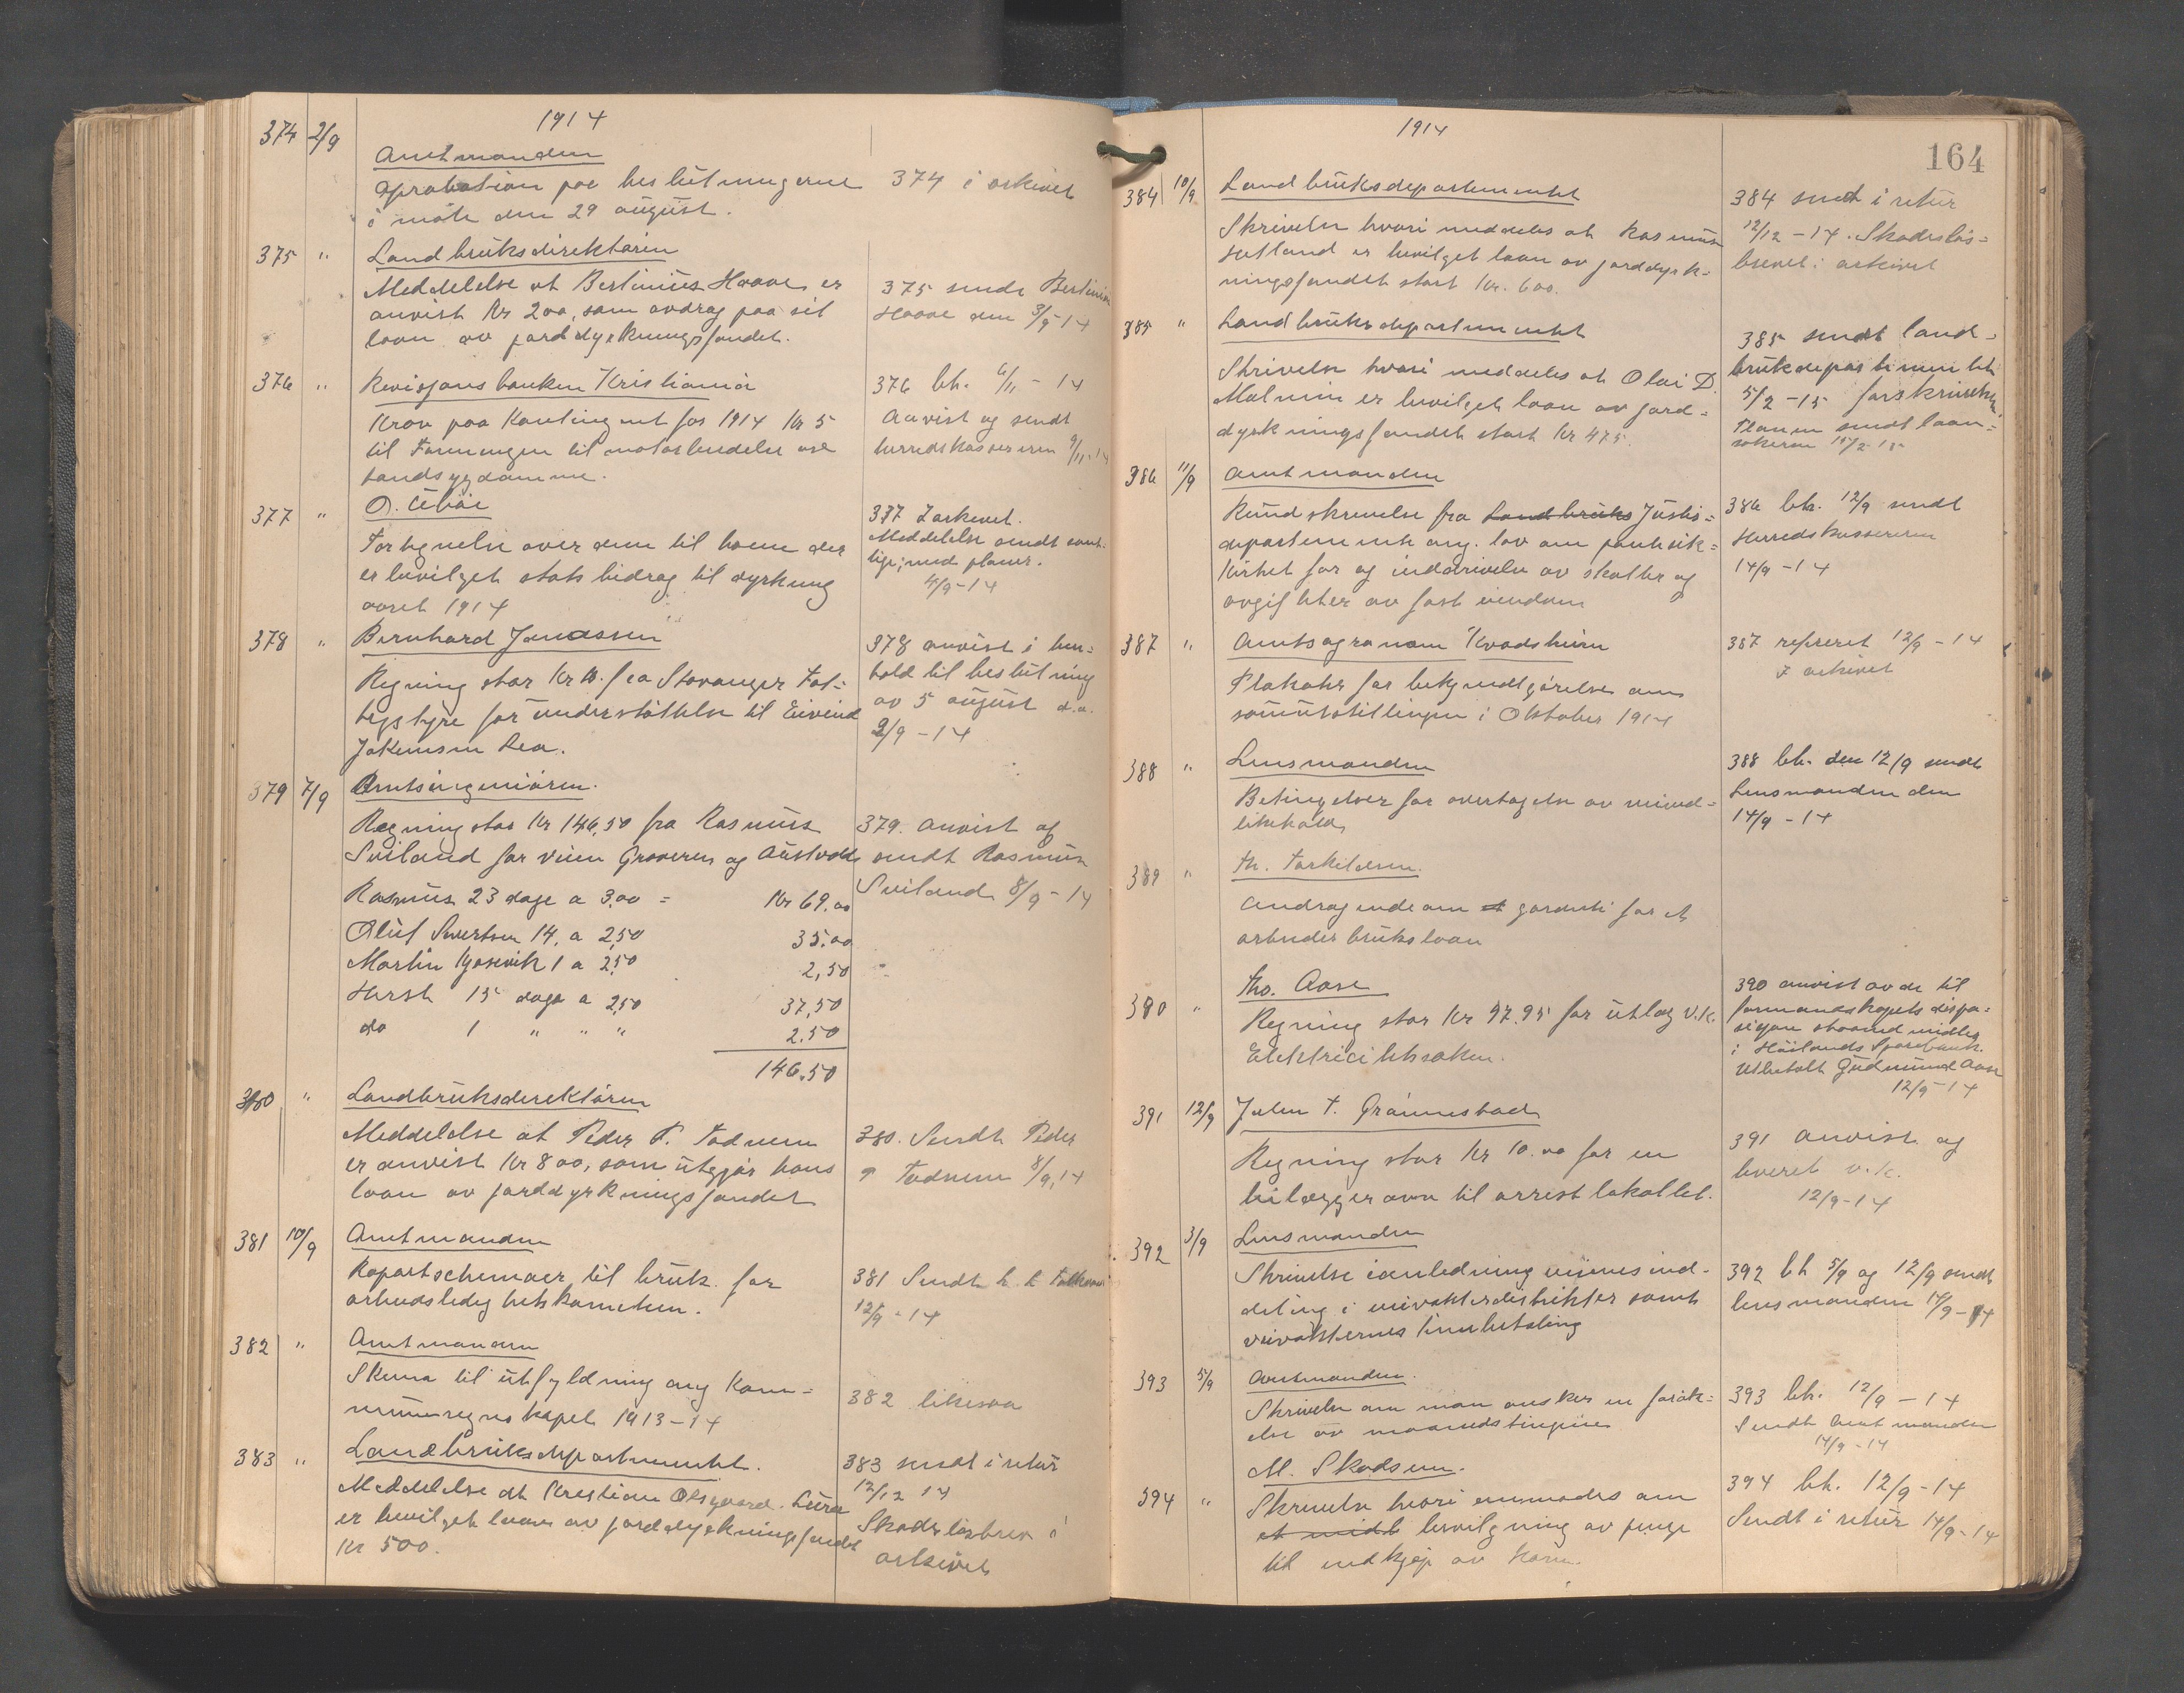 1914
374 2/9
Amtmanden
Aprobation paa beslutningerne
i møte den 29 august.
374 i arkivet
375 "
Landbruksdirektøren
Meddelelse at Bertinius Haave er
anvist Kr 200, som avdrag paa sit
laan av jorddyrkningsfondet.
375 sendt Bertinius
Haave den 3/9-14
376 "
Revisjons banken Kristiania
Krav paa Kontingent for 1914 Kr 5
til Foreningen til motarbeidelse av
tandsygdomme.
376 bh. 6/11 - 14
Anvist og sendt
herredskassereren 9/11-14
377 "
Fortegnelse over dem til hvem der
er bevilget stats bidrag til dyrkning
aaret 1914
377 I arkivet.
Meddelelse sendt samt-
lige; med planer.
4/9-14
378 "
Bernhard Jonassen
Regning stor Kr fra Stavanger Fat-
tigstyre for understøttelse til Eivind
Jakobsen Rea.
378 anvist i hen-
hold til beslutning
av 5 august d.a.
2/9 - 14
379 7/9
Amtsingeniøren.
Regning stor Kr 146,50 fra Rasmus
Sviland for veien Graveren og Austvoll
Rasmus 23 dage a 3,00 = Kr 69.00
Oluf Sivertsen 14, a 2,50 35.00
Martin 1 a 2,50 2,50
Hersk 15 dage a 2,50 37,50
do 1 " " " 2.50
146.50
379. anvist og
sendt Rasmus
Sviland 8/9 - 14
380 "
Landbruksdirektøren
Meddelelse at Peder P. Todnem
er anvist Kr 800, som utgjør hans
laan av jorddyrkningsfondet
380. Sendt Peder
P Todnem 8/9,14
381 10/9
Amtmanden
Raportschemaer til bruk for
arbeidsledighetskomiteen.
381 Sendt
12/9 - 14
382 "
Amtmanden
Skema til utfyldning ang Kom-
muneregnskapet 1913-14
382 likesaa
383 "
Landbruksdepartementet.
Meddelelse at Kristian Olsgaard. Lura
er bevilget laan av jorddyrkningsfondet
Kr 500.
383 sendt i retur
12/12 14
Skadesløsbrev i
arkivet
1914
164
384 10/9
Landbruksdepartementet
Skrivelse hvori meddeles at Rasmus
Hetland er bevilget laan av jorddyrk-
ningsfondet stort Kr. 600.
384 sendt i retur
12/12 - 14. Skadesløs-
brevet i arkivet
385 "
Landbruksdepartementet
Skrivelse hvori meddeles at Olai D.
Malmin er bevilget laan av jord-
dyrkningsfondet stort Kr 475.
385 sendt land-
bruksdepartementet
5/2 - 15 forskrivelsen,
Planen sendt laan-
søkeren 15/2 15
386 11/9
Amtmanden
Rundskrivelse fra Landbruks Justis-
departementet ang. lov om pantesik-
kerhet for og inddrivelse av skatter og
avgifter av fast eiendom
386 bh. 12/9 sendt
Herredskassereren
14/9 - 14
387 "
Amtsagronom Kvadsheim
Plakater for bekjendtgjørelse om
saueutstillingen i Oktober 1914
387 refereret 12/9 - 14
I arkivet
388 "
Lensmanden
Betingelser for overtagelse av veived-
likehold
388 bh. den 12/9 sendt
Lensmanden den
14/9 - 14
389 "
Th. Torkildsen.
Andragende om et garanti for et
arbeider bruks laan
390 "
Tho. Aase
Regning stor Kr 97.95 for utlæg v.k.
Elektricitetssaken.
390 anvist av de til
formandskapets dispo-
sisjon staaende midler
i Høilands Sparebank.
Utbetalt Gudmund Aase
12/9-14
391 12/9
Jalen T. Grønnestad
Regning stor Kr 10.00 for en
bilægger ovn til arrest lokallet.
391 anvist og
leveret v.k.
12/9-14
392 3/9
Lensmanden
Skrivelse ianledning veienes ind-
deling i veivokterdistrikter samt
veivokternes timebetaling
392 bh 5/9 og 12/9 sendt
lensmanden 14/9-14
393 5/9
Amtmanden.
Skrivelse om man ønsker en forøk-
else av maanedstingene
393 bh. 12/9 - 14
Sendt Amtmanden
14/9 - 14
394 "
M. Skadsem.
Skrivelse hvori anmodes om
et midl bevilgning av penge
til indkjøp av korn.
394 bh. 12/9-14
Sendt i retur 14/9-14